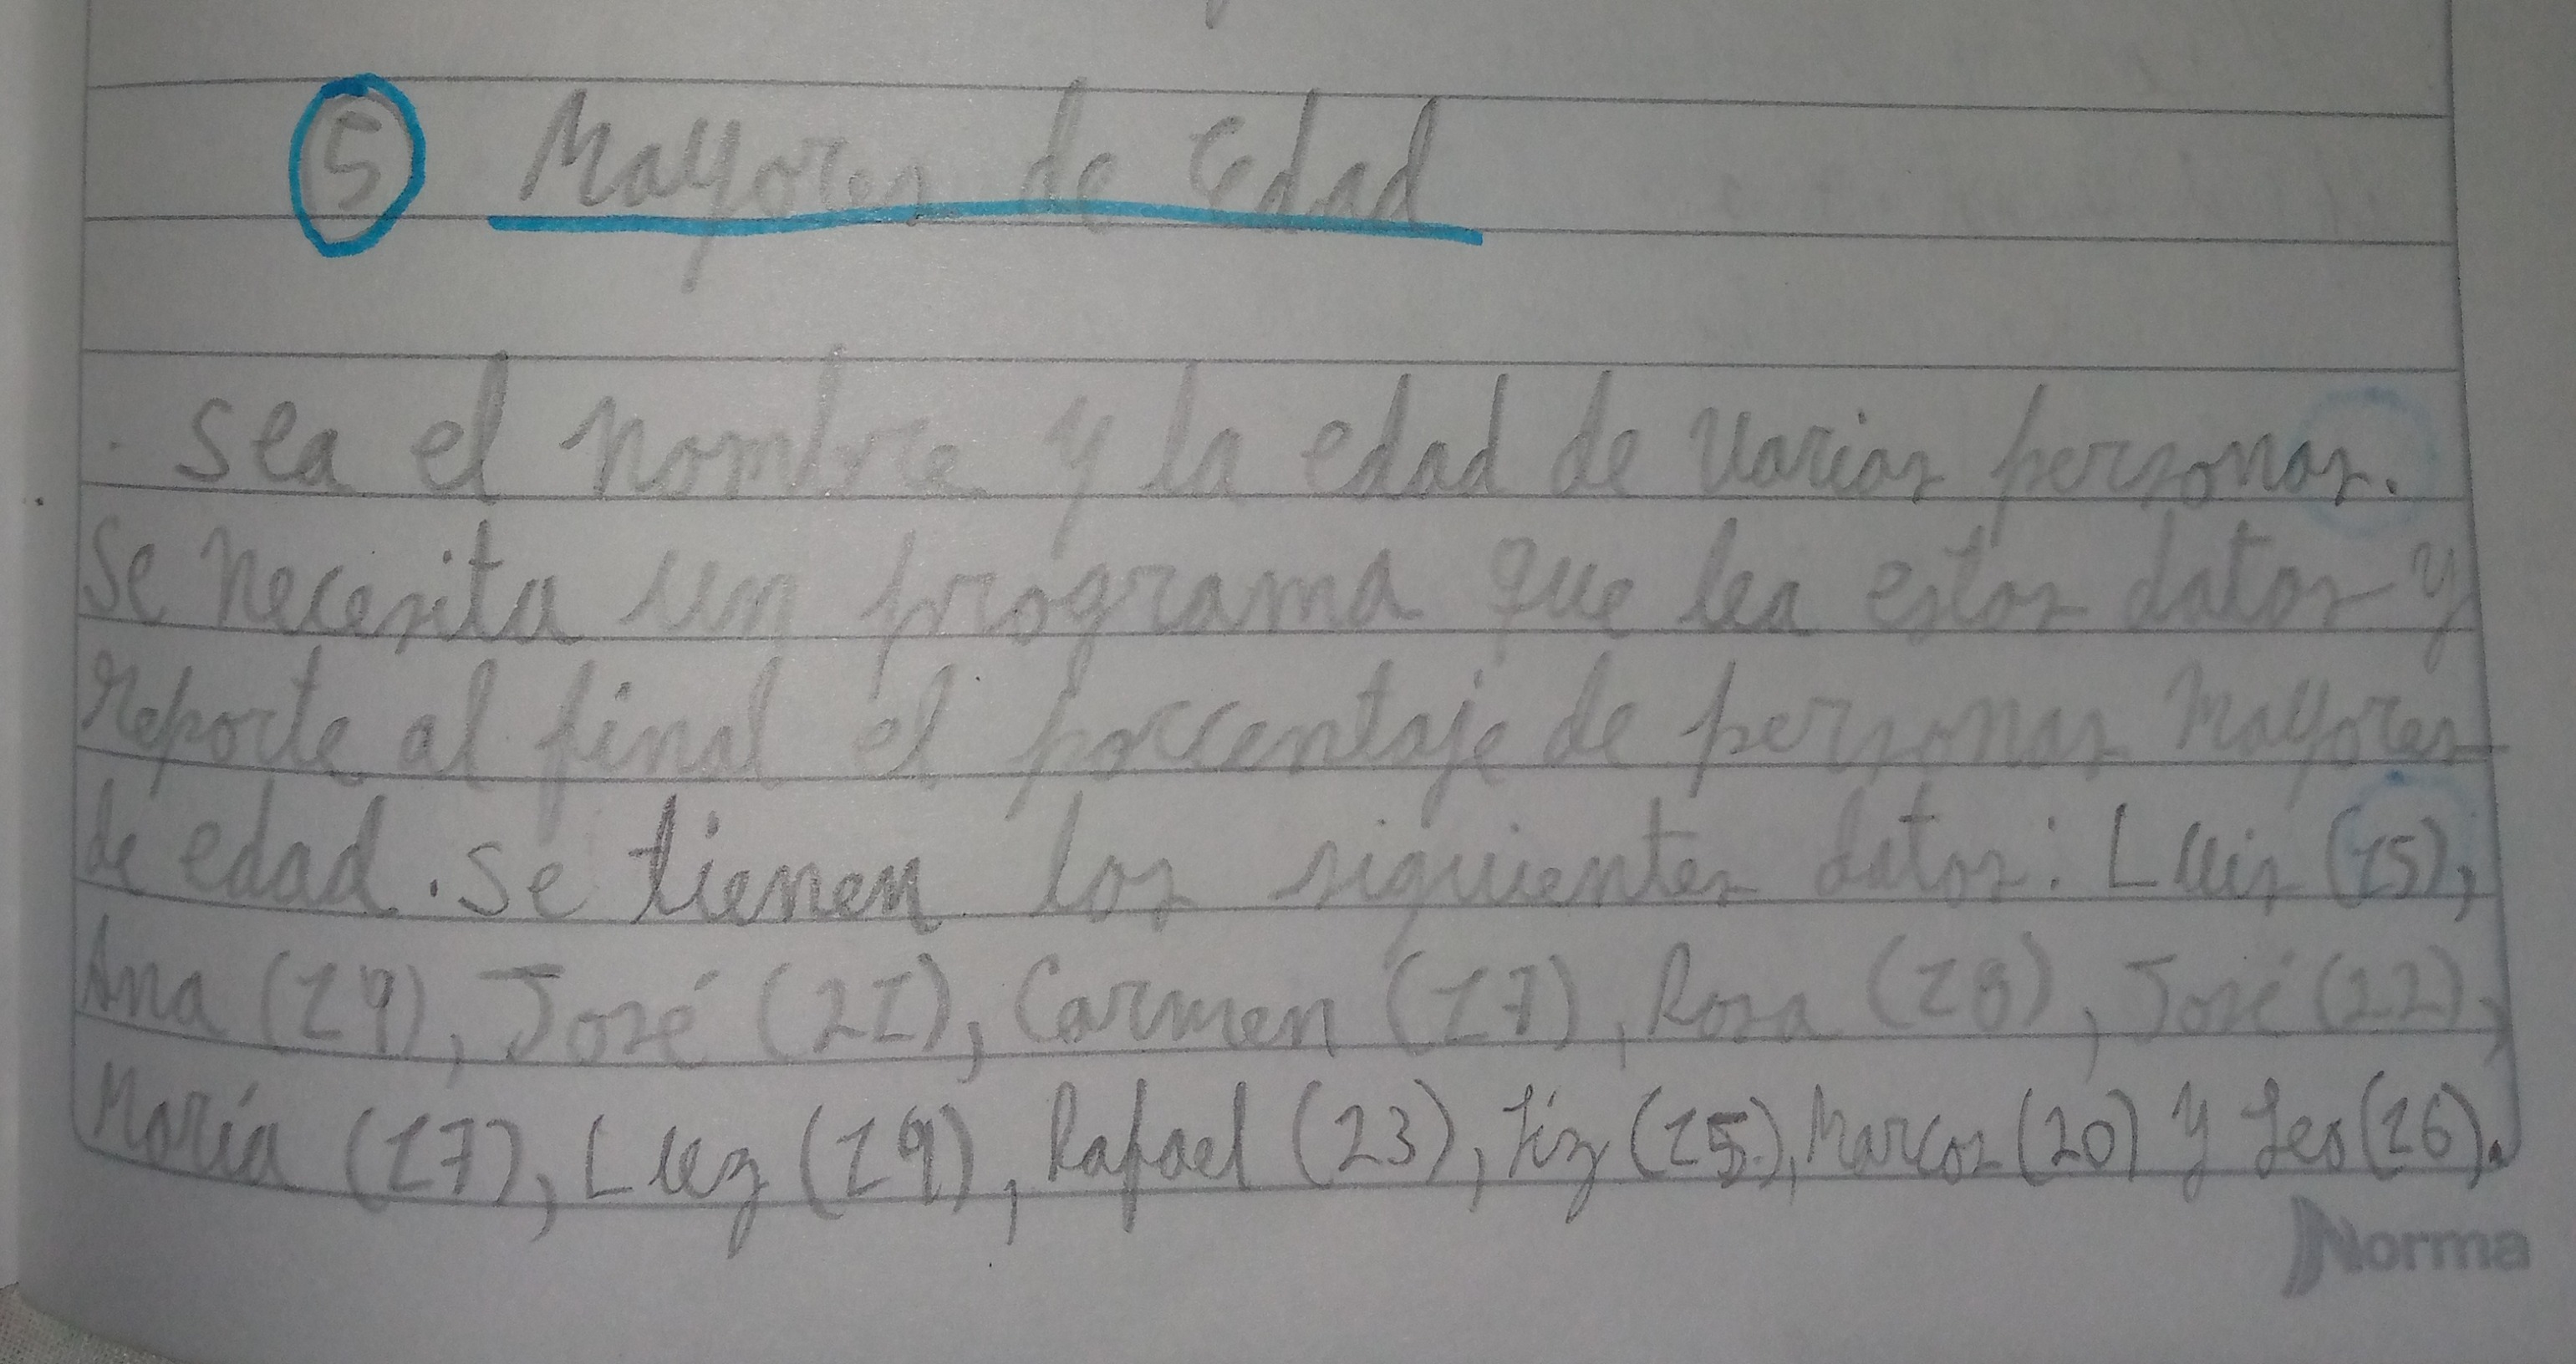 5 Mayores de Edad
. Sea el nombre y la edad de varias personas.
Se necesita un programa que lea estos datos y
reporte al final el porcentaje de personas mayores
de edad. Se tienen los siguientes datos: Luis (15),
Ana (19), José (21), Carmen (17), Rosa (18), José (22),
María (17), Luz (19), Rafael (23), Liz (15), Marcos (20) y Leo (16).
Norma